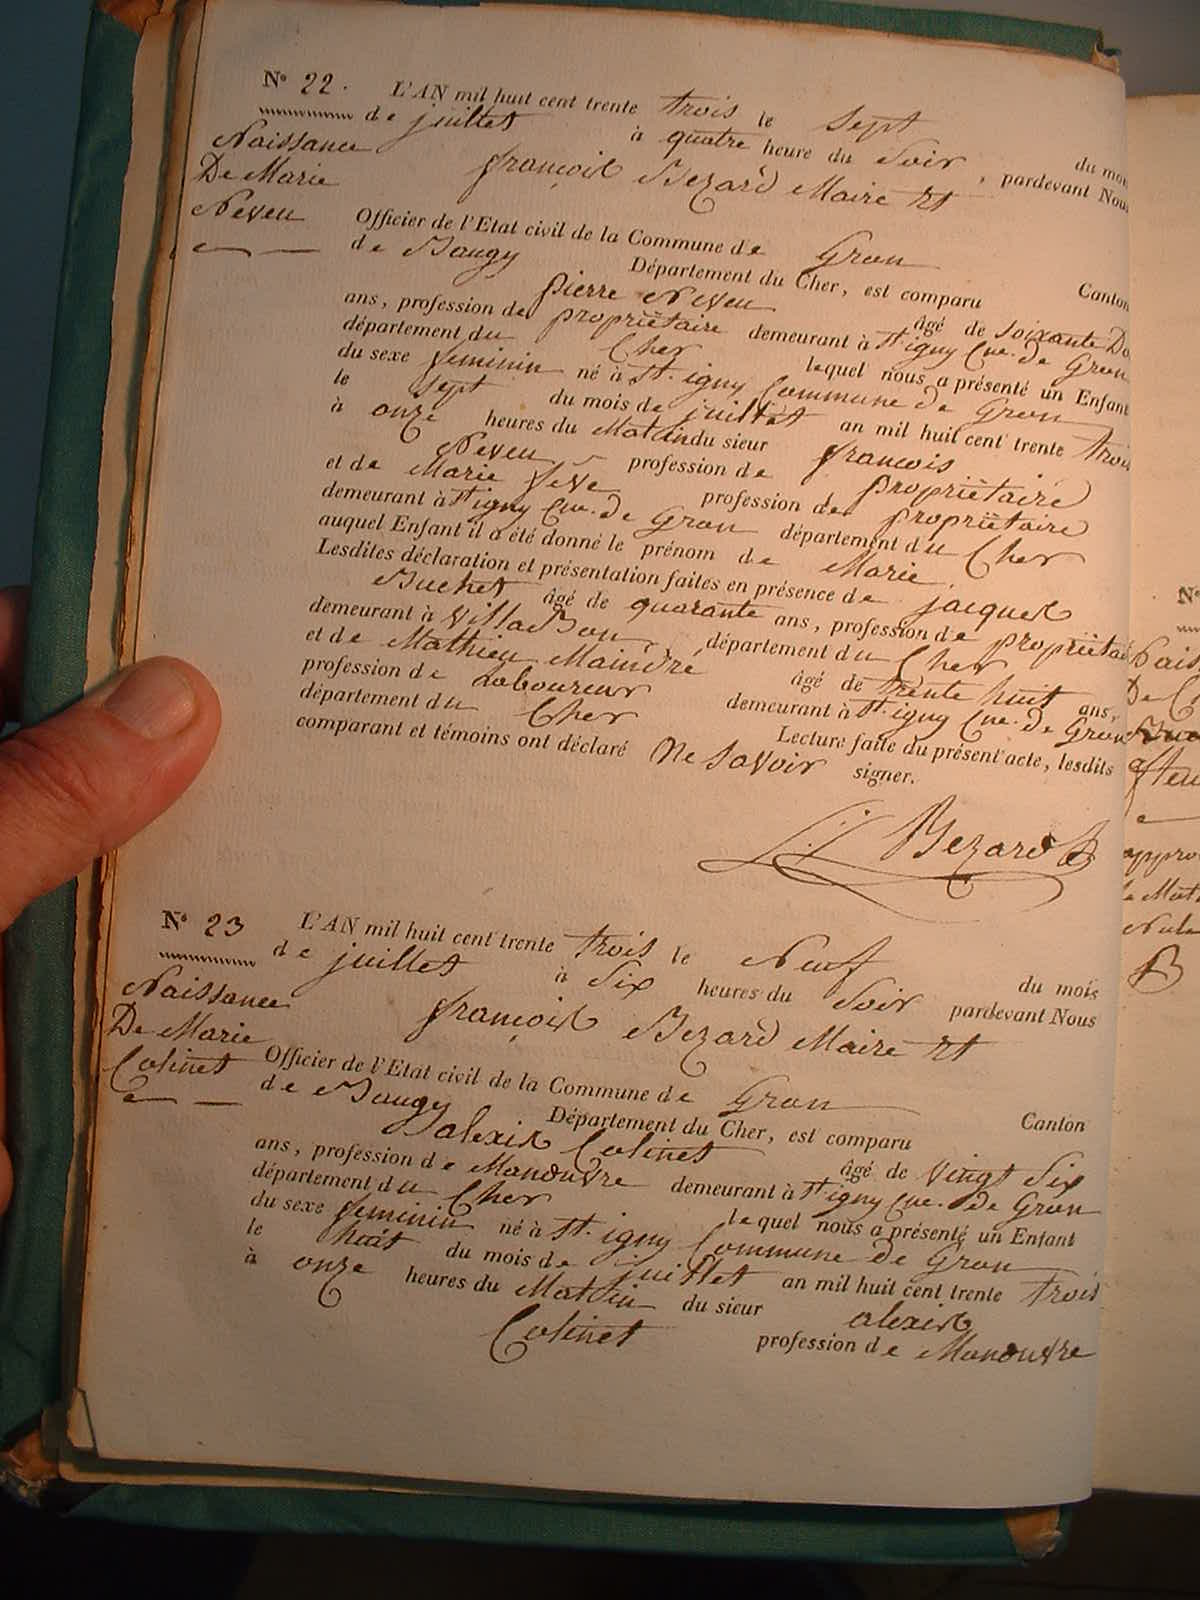 N° 22. L'AN mil huit cent trente trois le sept du mois
de juillet à quatre heure du Soir, pardevant Nous
Naissance
De Marie
Neveu
françois Bezard Maire Et
Officier de l'Etat civil de la Commune de Gron Canton
de Baugy Département du Cher, est comparu
pierre Neveu âgé de soixante Do
ans, profession de propriétaire demeurant à St. igny Cne. de Gron
département du Cher lequel nous a présenté un Enfant
du sexe feminin né à St. igny Commune de Gron
le sept du mois de juillet an mil huit cent trente trois
à onze heures du Matin du sieur francois
Neveu profession de propriètaire
et de Marie fève profession de propriètaire
demeurant à St igny Cne. de Gron département du Cher
auquel Enfant il a été donné le prénom de Marie.
Lesdites déclaration et présentation faites en présence de jacques
Buchet âgé de quarante ans, profession de propriètai
demeurant à VillaBon département du Cher
et de Mathieu Maindré âgé de trente huit ans,
profession de Laboureur demeurant à St. igny Cne. de Gron
département du Cher Lecture faite du présent acte, lesdits
comparant et témoins ont déclaré Ne savoir signer.
Bezard
N° 23 L'AN mil huit cent trente trois le Neuf du mois
de juillet à Six heures du Soir pardevant Nous
Naissance
De Marie
Colinet
françois Bezard Maire Et
Officier de l'Etat civil de la Commune de Gron Canton
de Baugy Département du Cher, est comparu
alexis Colinet âgé de vingt Six
ans, profession de Manouvre demeurant à St igny Cne. de Gron
département du Cher lequel nous a présenté un Enfant
du sexe feminin né à St. igny Commune de Gron
le huit du mois de juillet an mil huit cent trente trois
à onze heures du Matin du sieur alexis
Colinet profession de Manouvre
N°
De C
appro
B